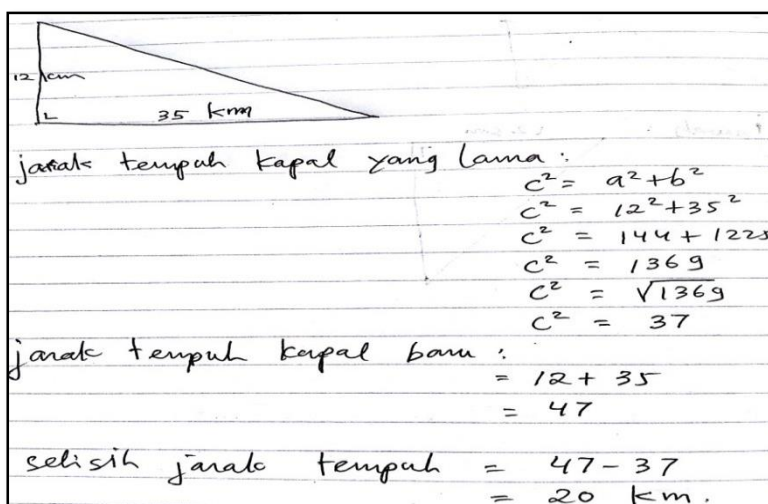 12 km
35 km
jarak tempuh kapal yang lama :
c² = a² + b²
c² = 12² + 35²
c² = 144 + 1225
c² = 1369
c² = √1369
c² = 37
jarak tempuh kapal baru :
= 12 + 35
= 47
selisih jarak tempuh = 47 - 37
= 20 km.